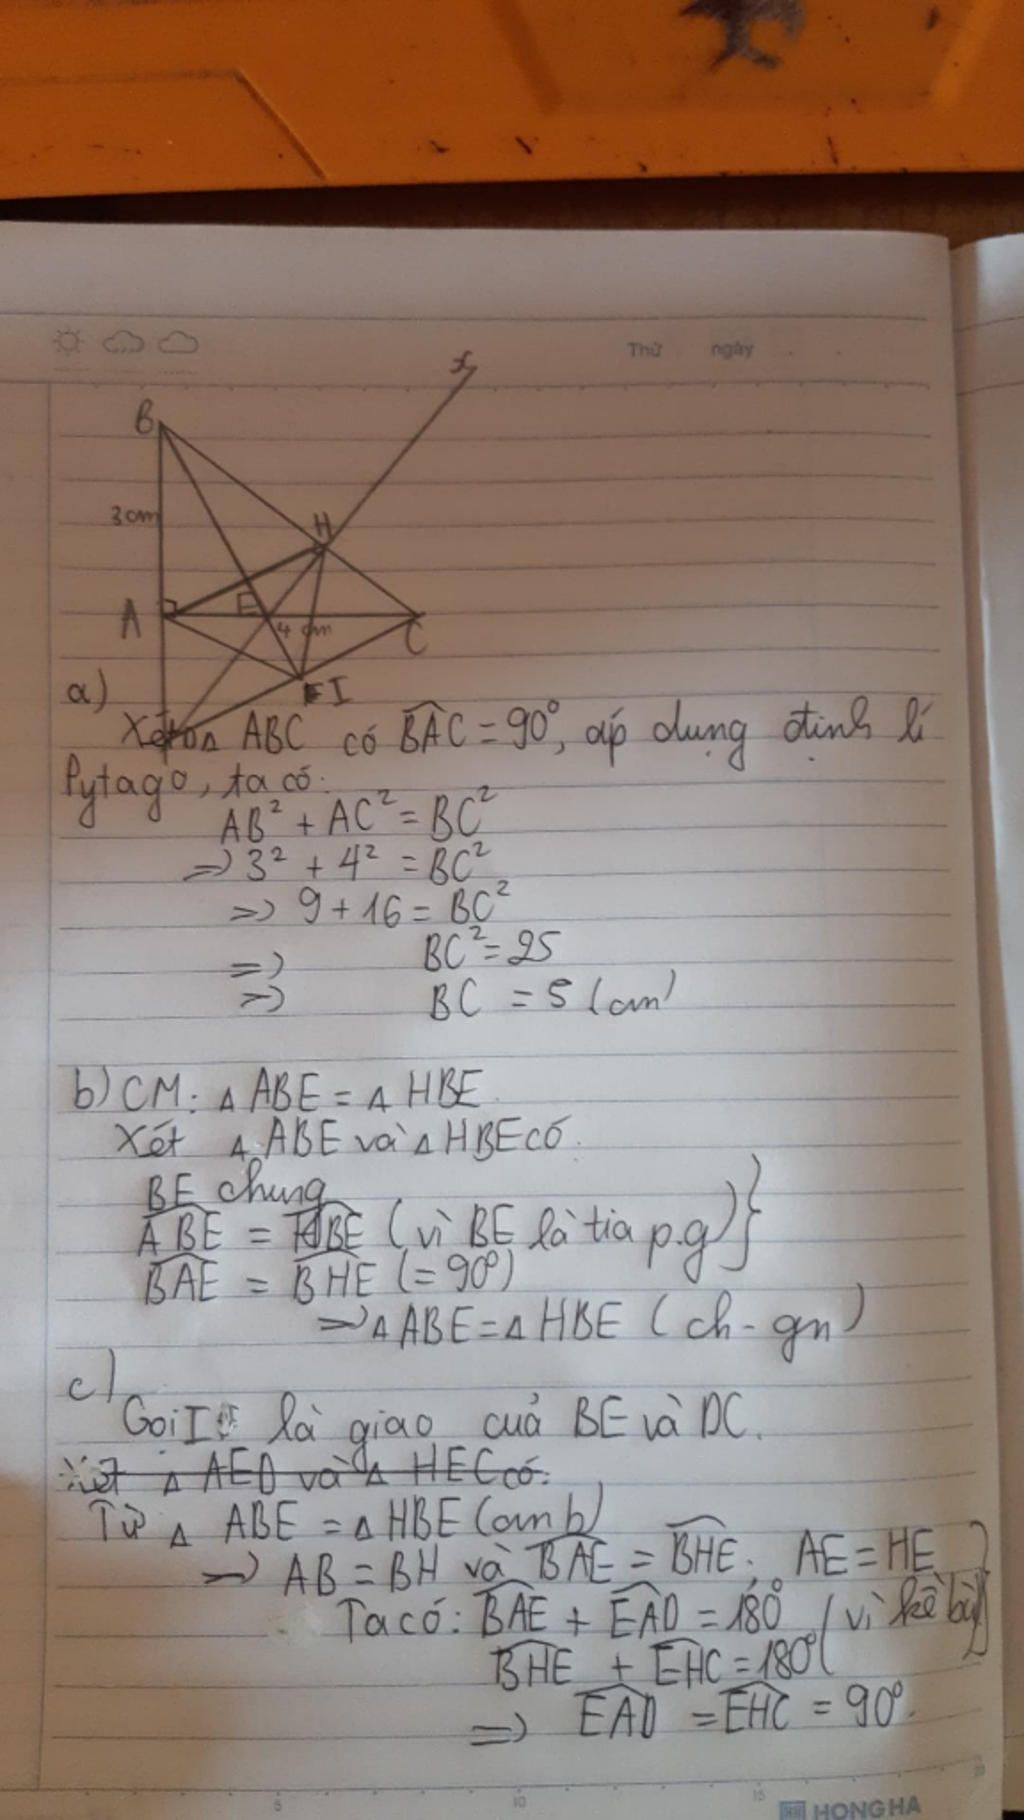 Thứ ngày
x
B
3cm
H
A
E
4 cm
C
I
a)
Xét △ ABC có BAC = 90°, áp dụng định lí
Pytago, ta có:
AB² + AC² = BC²
=> 3² + 4² = BC²
=> 9 + 16 = BC²
=> BC² = 25
=> BC = 5 (cm)
b) CM: △ ABE = △ HBE
Xét △ ABE và △ HBE có
BE chung
ABE = HBE (vì BE là tia p.g)
BAE = BHE (= 90°)
=> △ ABE = △ HBE (ch - gn)
c)
Gọi I là giao cuả BE và DC.
Xét △ AED và △ HEC có:
Từ △ ABE = △ HBE (cm b)
=> AB = BH và BAE = BHE; AE = HE
Ta có: BAE + EAD = 180° (vì kề bù)
BHE + EHC = 180° (
=> EAD = EHC = 90°.
5 10 15 20
HONG HA